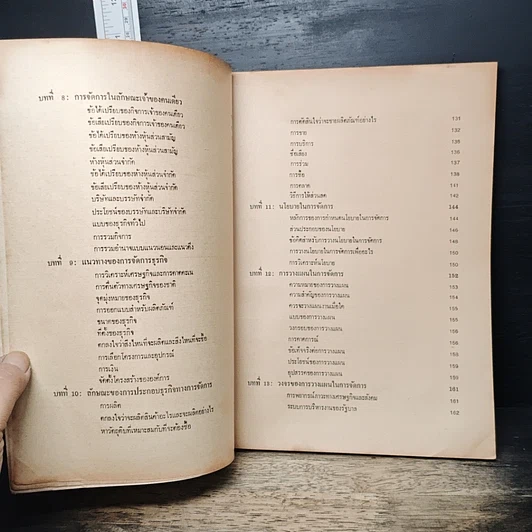 บทที่ 8: การจัดการในลักษณะเจ้าของคนเดียว
ข้อได้เปรียบของกิจการเจ้าของคนเดียว
ข้อเสียเปรียบของกิจการเจ้าของคนเดียว
ข้อได้เปรียบของห้างหุ้นส่วนสามัญ
ข้อเสียเปรียบของห้างหุ้นส่วนสามัญ
ห้างหุ้นส่วนจำกัด
ข้อได้เปรียบของห้างหุ้นส่วนจำกัด
ข้อเสียเปรียบของห้างหุ้นส่วนจำกัด
บริษัทและบริษัทจำกัด
ประโยชน์ของบริษัทและบริษัทจำกัด
แบบของธุรกิจทั่วไป
การรวมกิจการ
การรวมอำนาจแบบแนวนอนและแนวตั้ง
บทที่ 9: แนวทางของการจัดการธุรกิจ
การวิเคราะห์เศรษฐกิจและการคาดคะเน
การตื่นตัวทางเศรษฐกิจของชาติ
จุดมุ่งหมายของธุรกิจ
การออกแบบสำหรับผลิตภัณฑ์
ขนาดของธุรกิจ
ที่ตั้งของธุรกิจ
ตกลงใจว่าสิ่งไหนที่จะผลิตและสิ่งไหนที่จะซื้อ
การเลือกโครงการและอุปกรณ์
การเงิน
จัดตั้งโครงสร้างขององค์การ
บทที่ 10: ลักษณะของการประกอบธุรกิจทางการจัดการ
การผลิต
ตกลงใจว่าจะผลิตสินค้าอะไรและจะผลิตอย่างไร
หาวัตถุดิบที่เหมาะสมกับที่จะต้องซื้อ
การตัดสินใจว่าจะขายผลิตภัณฑ์อย่างไร 131
การขาย 132
การบริการ 135
ชื่อเสียง 136
การร่วม 137
การซื้อ 138
การตลาด 141
วิธีการใช้ส่วนลด 142
บทที่ 11: นโยบายในการจัดการ 144
หลักการของการกำหนดนโยบายในการจัดการ 145
ส่วนประกอบของนโยบาย
ข้อคิดสำหรับการวางนโยบายในการจัดการ
การวางนโยบายในการจัดการเพื่ออะไร
การวิเคราะห์นโยบาย
บทที่ 12: การวางแผนในการจัดการ 152
ความหมายของการวางแผน
ความสำคัญของการวางแผน
ควรจะวางแผนงานเมื่อใด
แบบของการวางแผน
วงรอบของการวางแผน
การคาดการณ์
ข้อเท็จจริงต่อการวางแผน
ประโยชน์ของการวางแผน
อุปสรรคของการวางแผน
บทที่ 13: วงจรของการวางแผนในการจัดการ 161
การพยากรณ์ภาวะทางเศรษฐกิจและสังคม 161
ระบบการบริหารงานของรัฐบาล 162